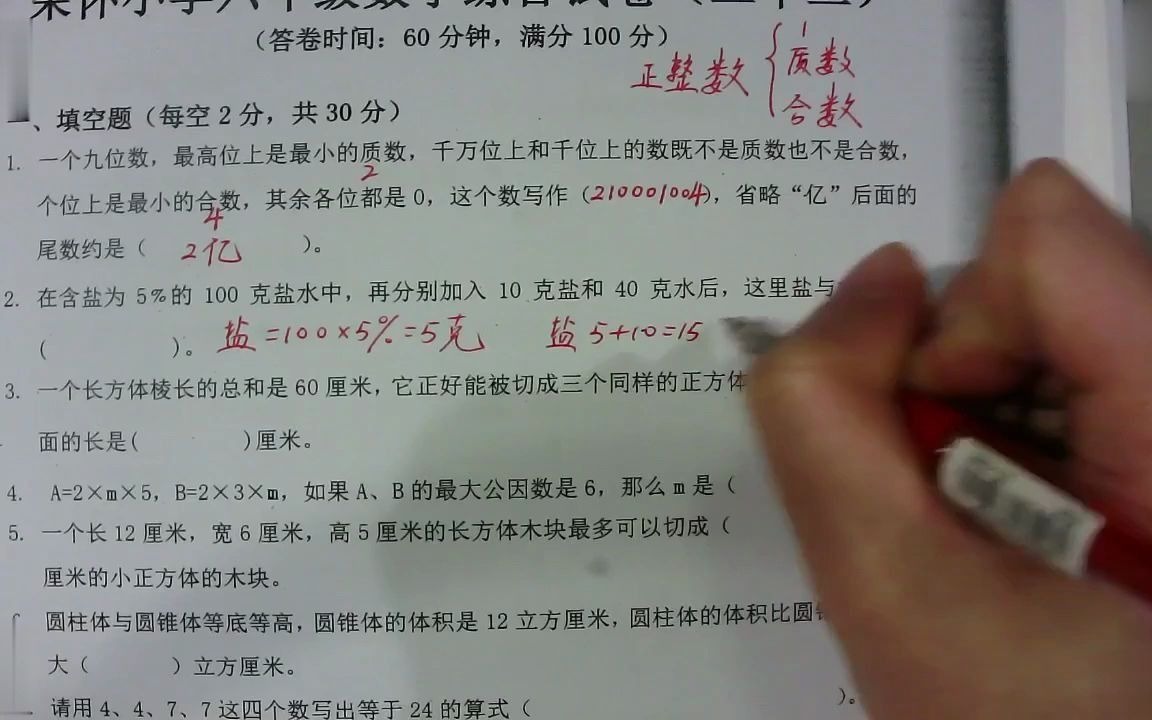 (答卷时间：60 分钟，满分 100 分)
正整数 { 1
质数
合数
、填空题（每空 2 分，共 30 分）
1. 一个九位数，最高位上是最小的质数，千万位上和千位上的数既不是质数也不是合数，
2
个位上是最小的合数，其余各位都是 0，这个数写作（210001004），省略“亿”后面的
4
尾数约是（ 2亿 ）。
2. 在含盐为 5%的 100 克盐水中，再分别加入 10 克盐和 40 克水后，这里盐与
( )。 盐=100×5%=5克 盐 5+10=15
3. 一个长方体棱长的总和是 60 厘米，它正好能被切成三个同样的正方体
面的长是( )厘米。
4. A=2×m×5，B=2×3×m，如果 A、B 的最大公因数是 6，那么 m 是（
5. 一个长 12 厘米，宽 6 厘米，高 5 厘米的长方体木块最多可以切成（
厘米的小正方体的木块。
圆柱体与圆锥体等底等高，圆锥体的体积是 12 立方厘米，圆柱体的体积比圆
大（ ）立方厘米。
请用 4、4、7、7 这四个数写出等于 24 的算式（ ）。